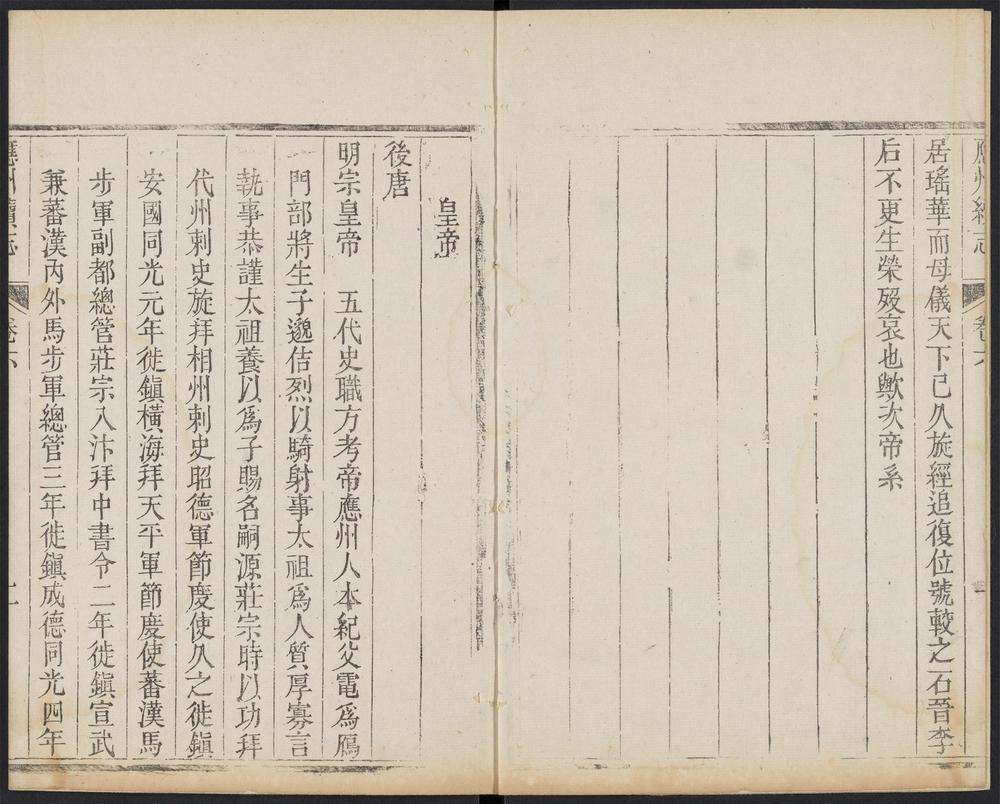 應州續志 卷六
居瑤華而母儀天下已久旋經追復位號較之石晉李
后不更生榮殁哀也歟次帝系
皇帝
後唐
明宗皇帝 五代史職方考帝應州人本紀父電爲鴈
門部將生子邈佶烈以騎射事太祖爲人質厚寡言
執事恭謹太祖養以爲子賜名嗣源莊宗時以功拜
代州刺史旋拜相州刺史昭德軍節度使久之徙鎭
安國同光元年徙鎭橫海拜天平軍節度使蕃漢馬
步軍副都總管莊宗入汴拜中書令二年徙鎭宣武
兼蕃漢內外馬步軍總管三年徙鎭成德同光四年
應州續志 卷六